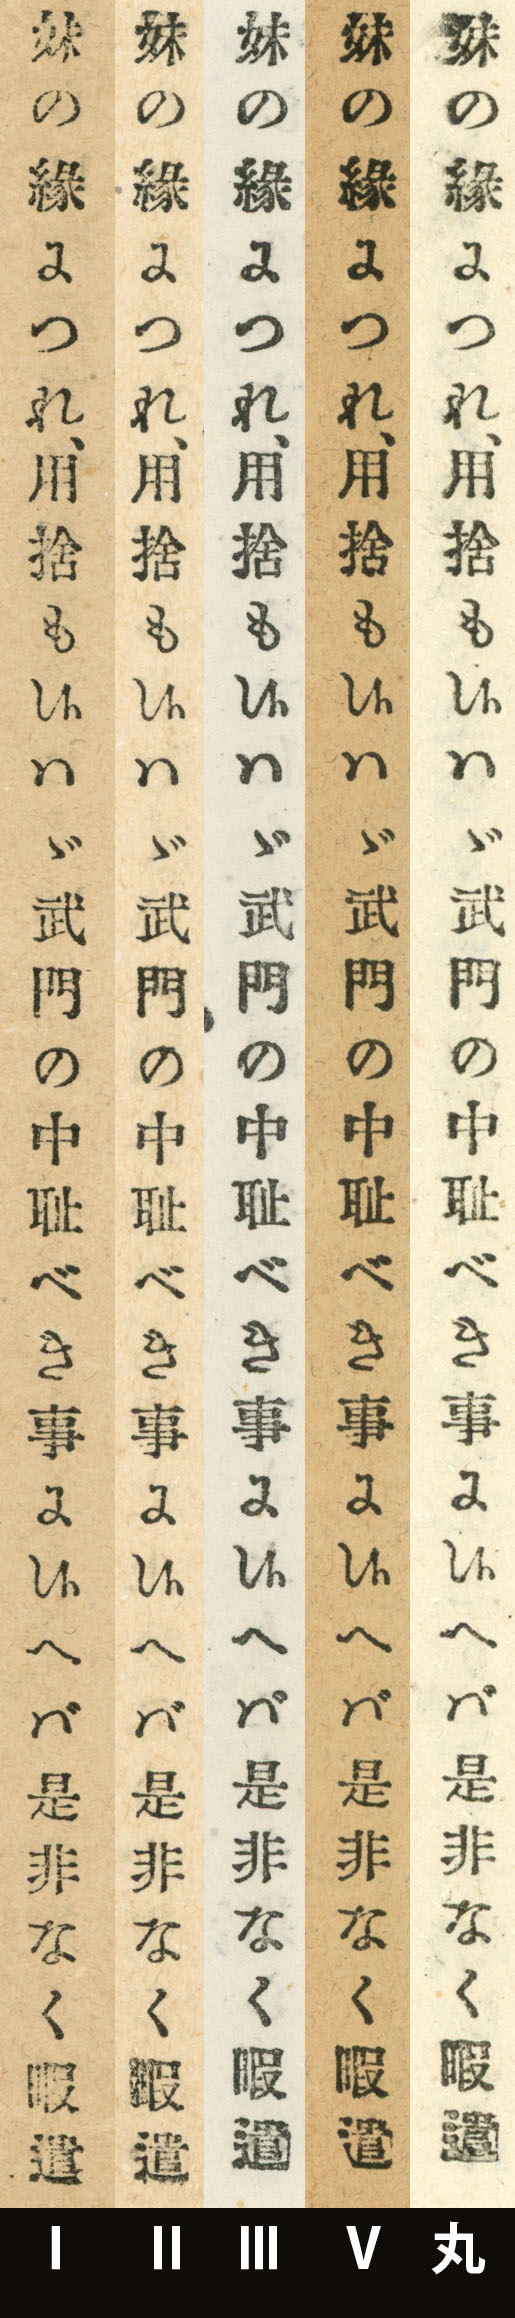 妹の緣につれ、用捨も候ハゞ武門の中耻べき事に候へバ是非なく暇遣
妹の緣につれ、用捨も候ハゞ武門の中耻べき事に候へバ是非なく暇遣
妹の緣につれ、用捨も候ハゞ武門の中耻べき事に候へバ是非なく暇遣
妹の緣につれ、用捨も候ハゞ武門の中耻べき事に候へバ是非なく暇遣
妹の緣につれ、用捨も候ハゞ武門の中耻べき事に候へバ是非なく暇遣
I II III V 丸